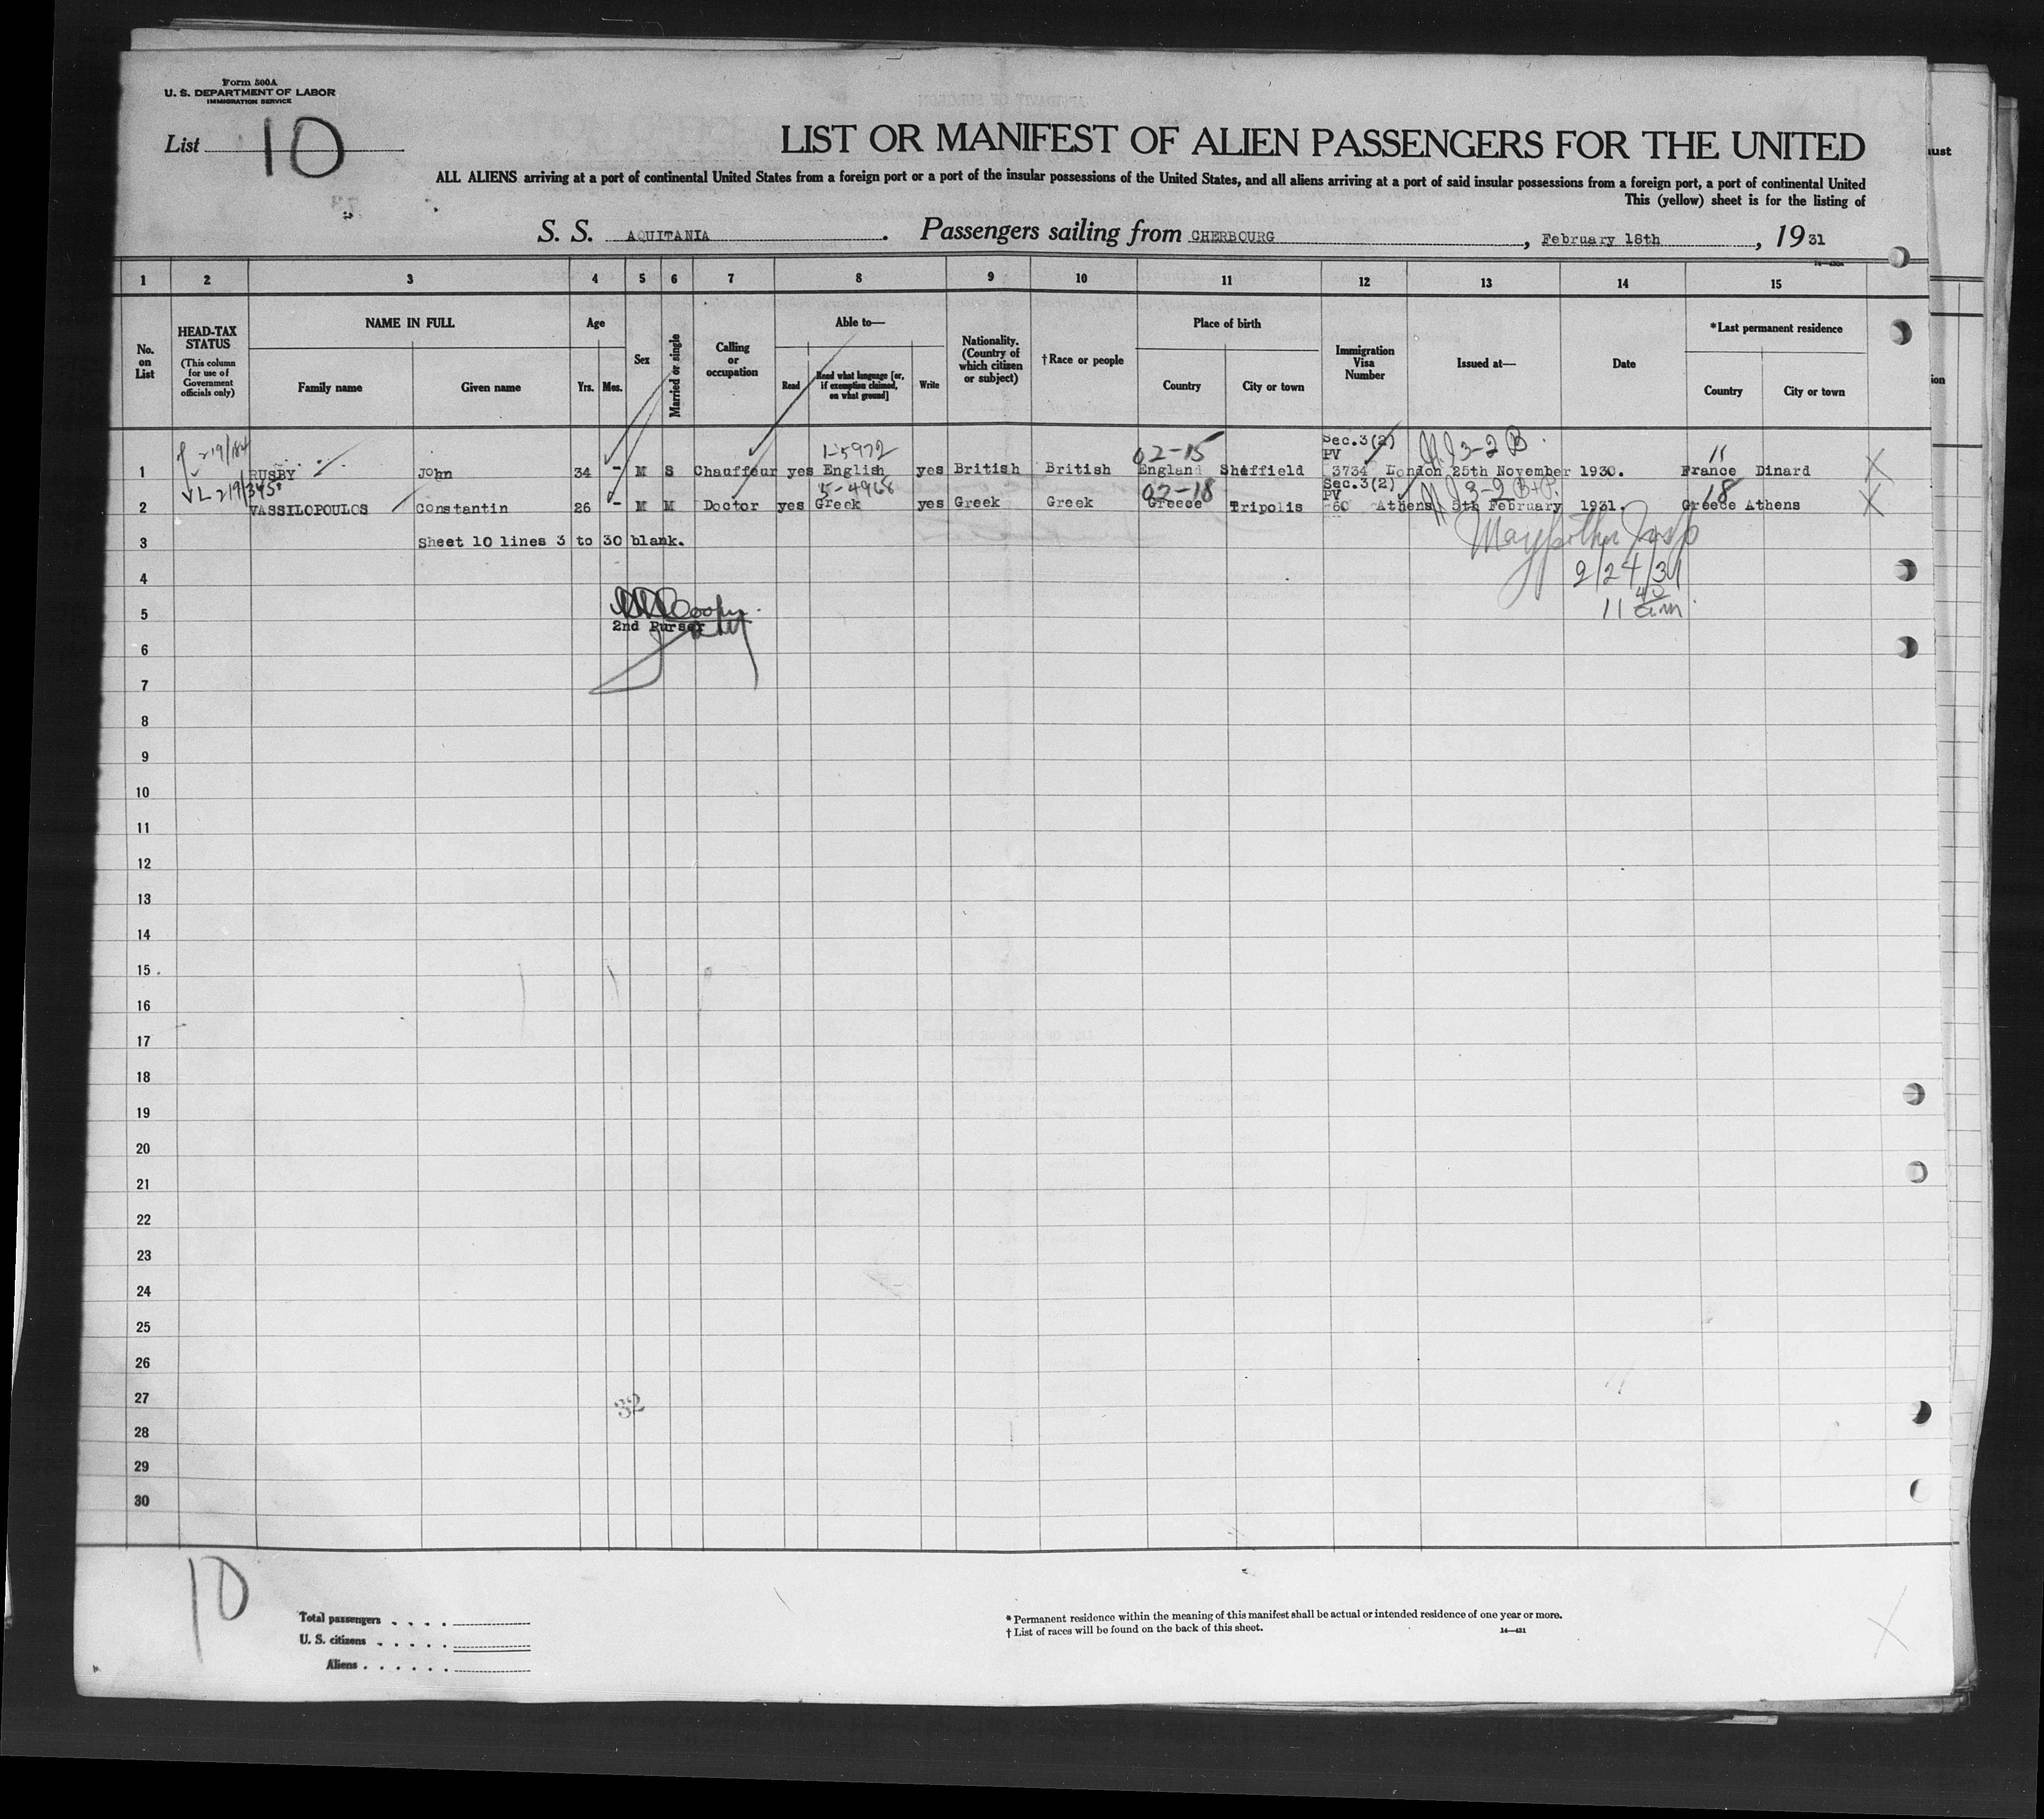 Form 500A
U. S. DEPARTMENT OF LABOR
IMMIGRATION SERVICE
List 10
LIST OR MANIFEST OF ALIEN PASSENGERS FOR THE UNITED
ALL ALIENS arriving at a port of continental United States from a foreign port or a port of the insular possessions of the United States, and all aliens arriving at a port of said insular possessions from a foreign port, a port of continental United
This (yellow) sheet is for the listing of
S. S. AQUITANIA. Passengers sailing from CHERBOURG, February 18th, 1931
1 2 3 4 5 6 7 8 9 10 11 12 13 14 15
No. on List
HEAD-TAX STATUS
(This column for use of Government officials only)
NAME IN FULL
Family name
Given name
Age
Yrs.
Mos.
Sex
Married or single
Calling or occupation
Able to—
Read
Read what language [or, if exemption claimed, on what ground]
Write
Nationality. (Country of which citizen or subject)
†Race or people
Place of birth
Country
City or town
Immigration Visa Number
Issued at—
Date
*Last permanent residence
Country
City or town
1-5972 02-15 Sec.3(2) 3-2 B 11
PV
1 RUSBY John 34 - M S Chauffeur yes English yes British British England Sheffield 3734 London 25th November 1930. France Dinard X
5-4968 02-18 Sec.3(2) 3-2 B+P. 18
PV
2 VASSILOPOULOS Constantin 26 - M M Doctor yes Greek yes Greek Greek Greece Tripolis 60 Athens 5th February 1931. Greece Athens X
3 Sheet 10 lines 3 to 30 blank.
4 2/24/31
5 2nd Purser 11 40 am.
6
7
8
9
10
11
12
13
14
15
16
17
18
19
20
21
22
23
24
25
26
27 32
28
29
30
10
Total passengers
U. S. citizens
Aliens
* Permanent residence within the meaning of this manifest shall be actual or intended residence of one year or more.
† List of races will be found on the back of this sheet.
14—431
X
ust
ion